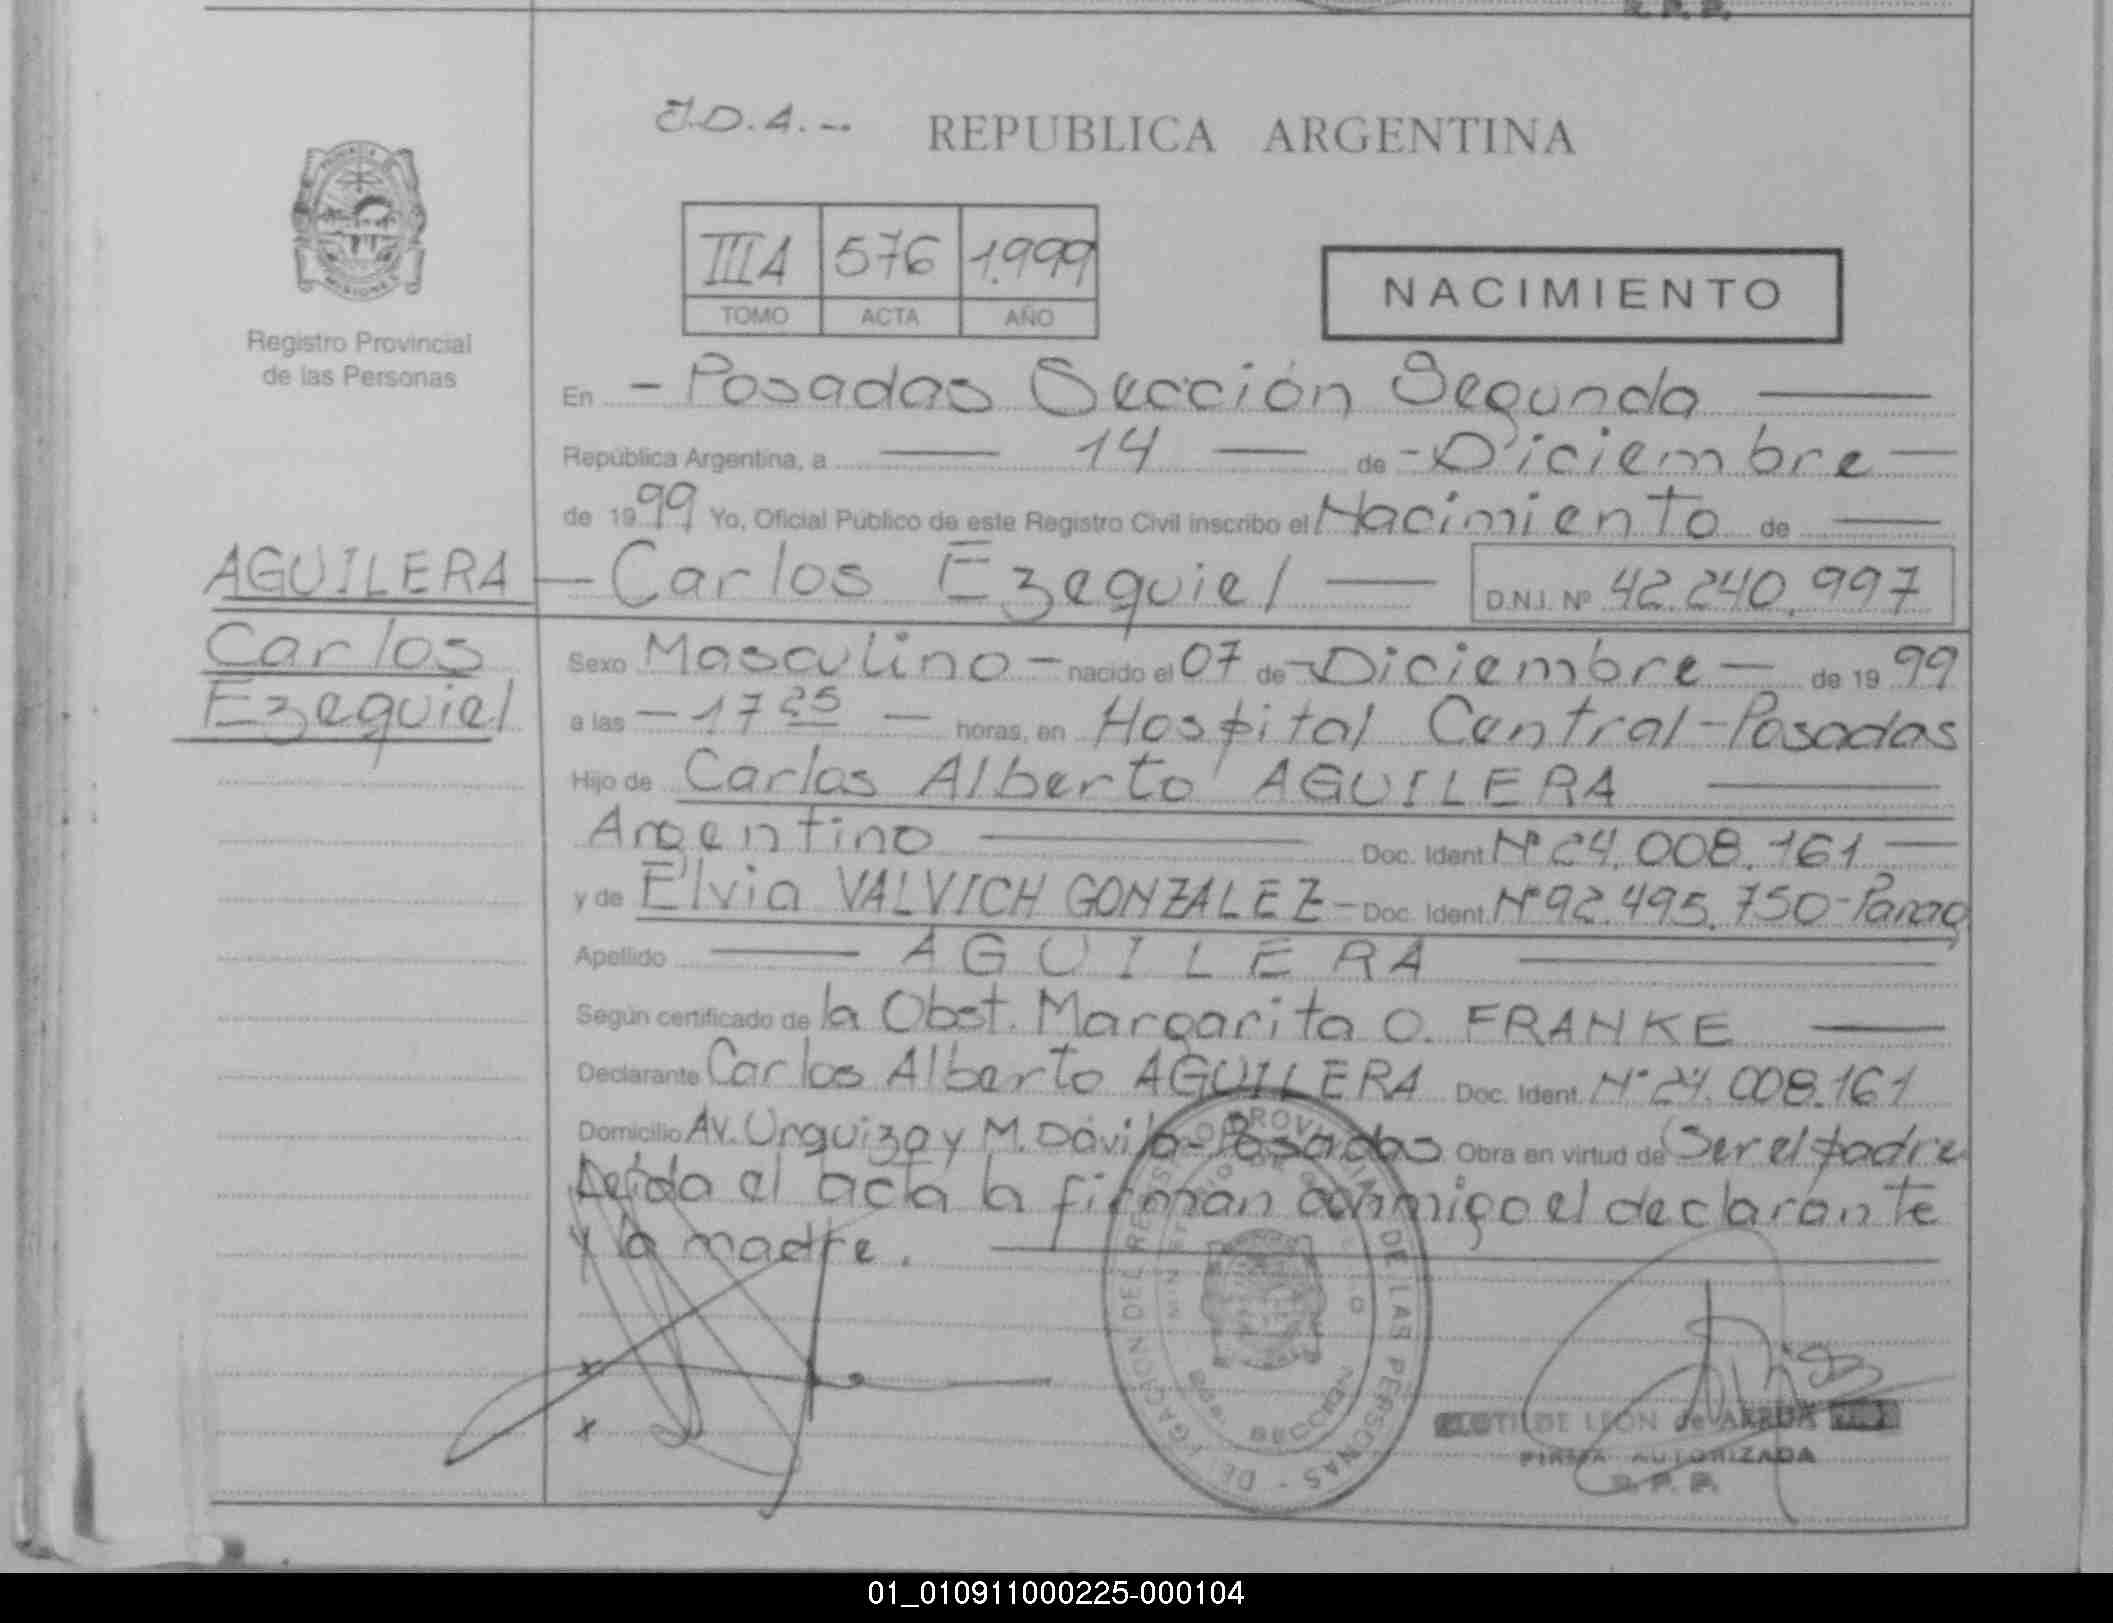 J.D.A.--
REPUBLICA ARGENTINA
IIIA 576 1.999
TOMO ACTA AÑO
NACIMIENTO
Registro Provincial
de las Personas
En - Posadas Sección Segunda
República Argentina, a 14 de - Diciembre
de 1999 Yo, Oficial Público de este Registro Civil inscribo el Nacimiento de
AGUILERA
Carlos
Ezequiel
Carlos Ezequiel D.N.I. Nº 42.240.997
Sexo Masculino - nacido el 07 de - Diciembre - de 1999
a las - 17 25 - horas, en Hospital Central - Posadas
Hijo de Carlos Alberto AGUILERA
Argentino Doc. Ident. Nº 24.008.161
y de Elvia VALVICH GONZALEZ - Doc. Ident. Nº 92.495.750 - Parag
Apellido AGUILERA
Según certificado de la Obst. Margarita O. FRANKE
Declarante Carlos Alberto AGUILERA Doc. Ident. Nº 24.008.161
Domicilio Av. Urquiza y M. Dávila - Posadas Obra en virtud de Ser el padre
Leída el acta la firman conmigo el declarante
y la madre.
DELEGACION DEL REGISTRO PROVINCIAL DE LAS PERSONAS
LEON de
FIRMA AUTORIZADA
R. P. P.
01_010911000225-000104